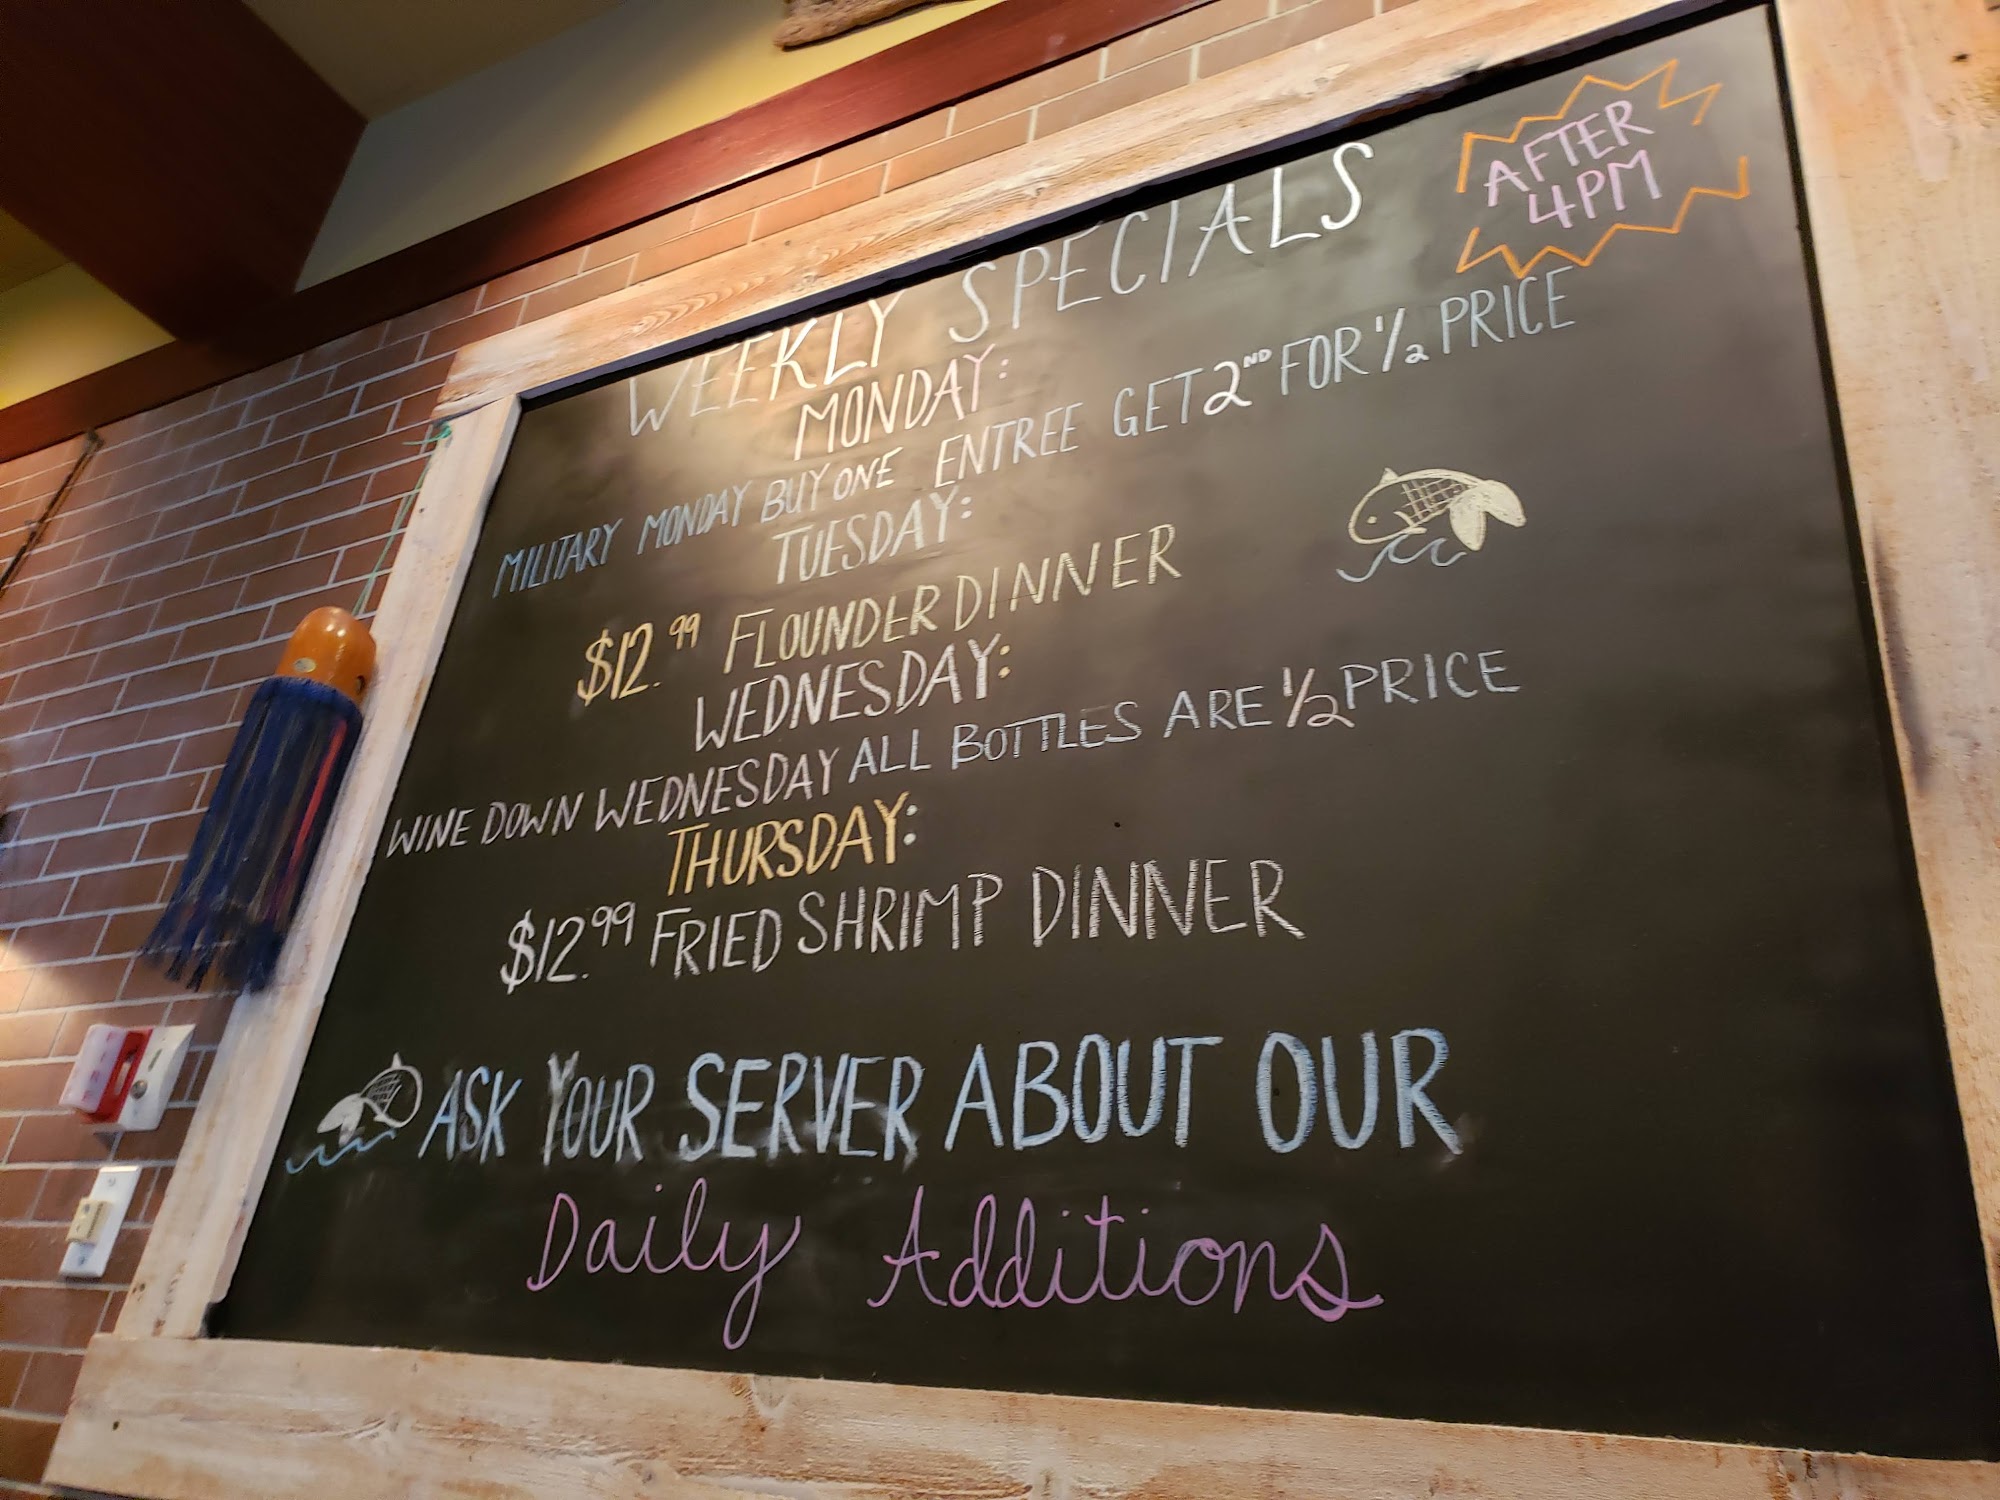 AFTER
4PM
WEEKLY SPECIALS
MONDAY:
MILITARY MONDAY BUY ONE ENTREE GET 2ND FOR 1/2 PRICE
TUESDAY:
$12.99 FLOUNDER DINNER
WEDNESDAY:
WINE DOWN WEDNESDAY ALL BOTTLES ARE 1/2 PRICE
THURSDAY:
$12.99 FRIED SHRIMP DINNER
ASK YOUR SERVER ABOUT OUR
Daily Additions